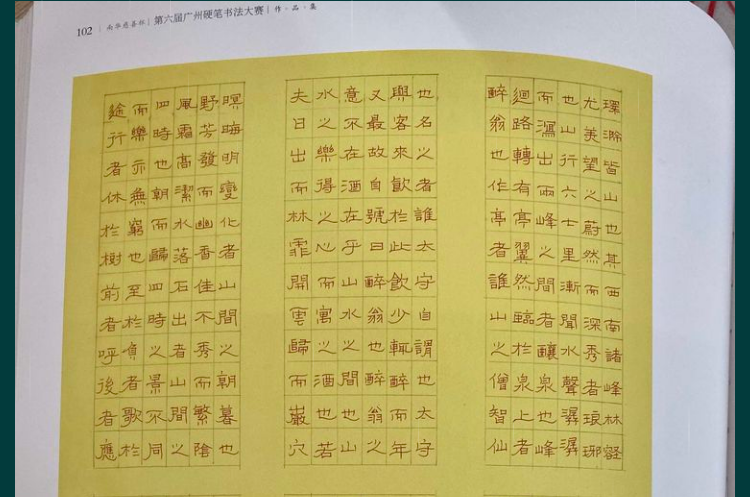 102 南华慈善杯|第六届广州硬笔书法大赛|作·品·集
環滁皆山也其西南諸峰林壑
尤美望之蔚然而深秀者琅琊
也山行六七里漸聞水聲潺潺
而瀉出兩峰之間者釀泉也峰
迴路轉有亭翼然臨於泉上者
醉翁也作亭者誰山之僧智仙
也名之者誰太守自謂也太守
與客來飲於此飲少輒醉而年
又最故自號曰醉翁也醉翁之
意不在酒在乎山水之間也山
水之樂得之心而寓之酒也若
夫日出而林霏開雲歸而巖穴
暝晦明變化者山間之朝暮也
野芳發而幽香佳木秀而繁陰
風霜高潔水落石出者山間之
四時也朝而歸四時之景不同
而樂亦無窮也至於負者歌於
途行者休於樹前者呼後者應